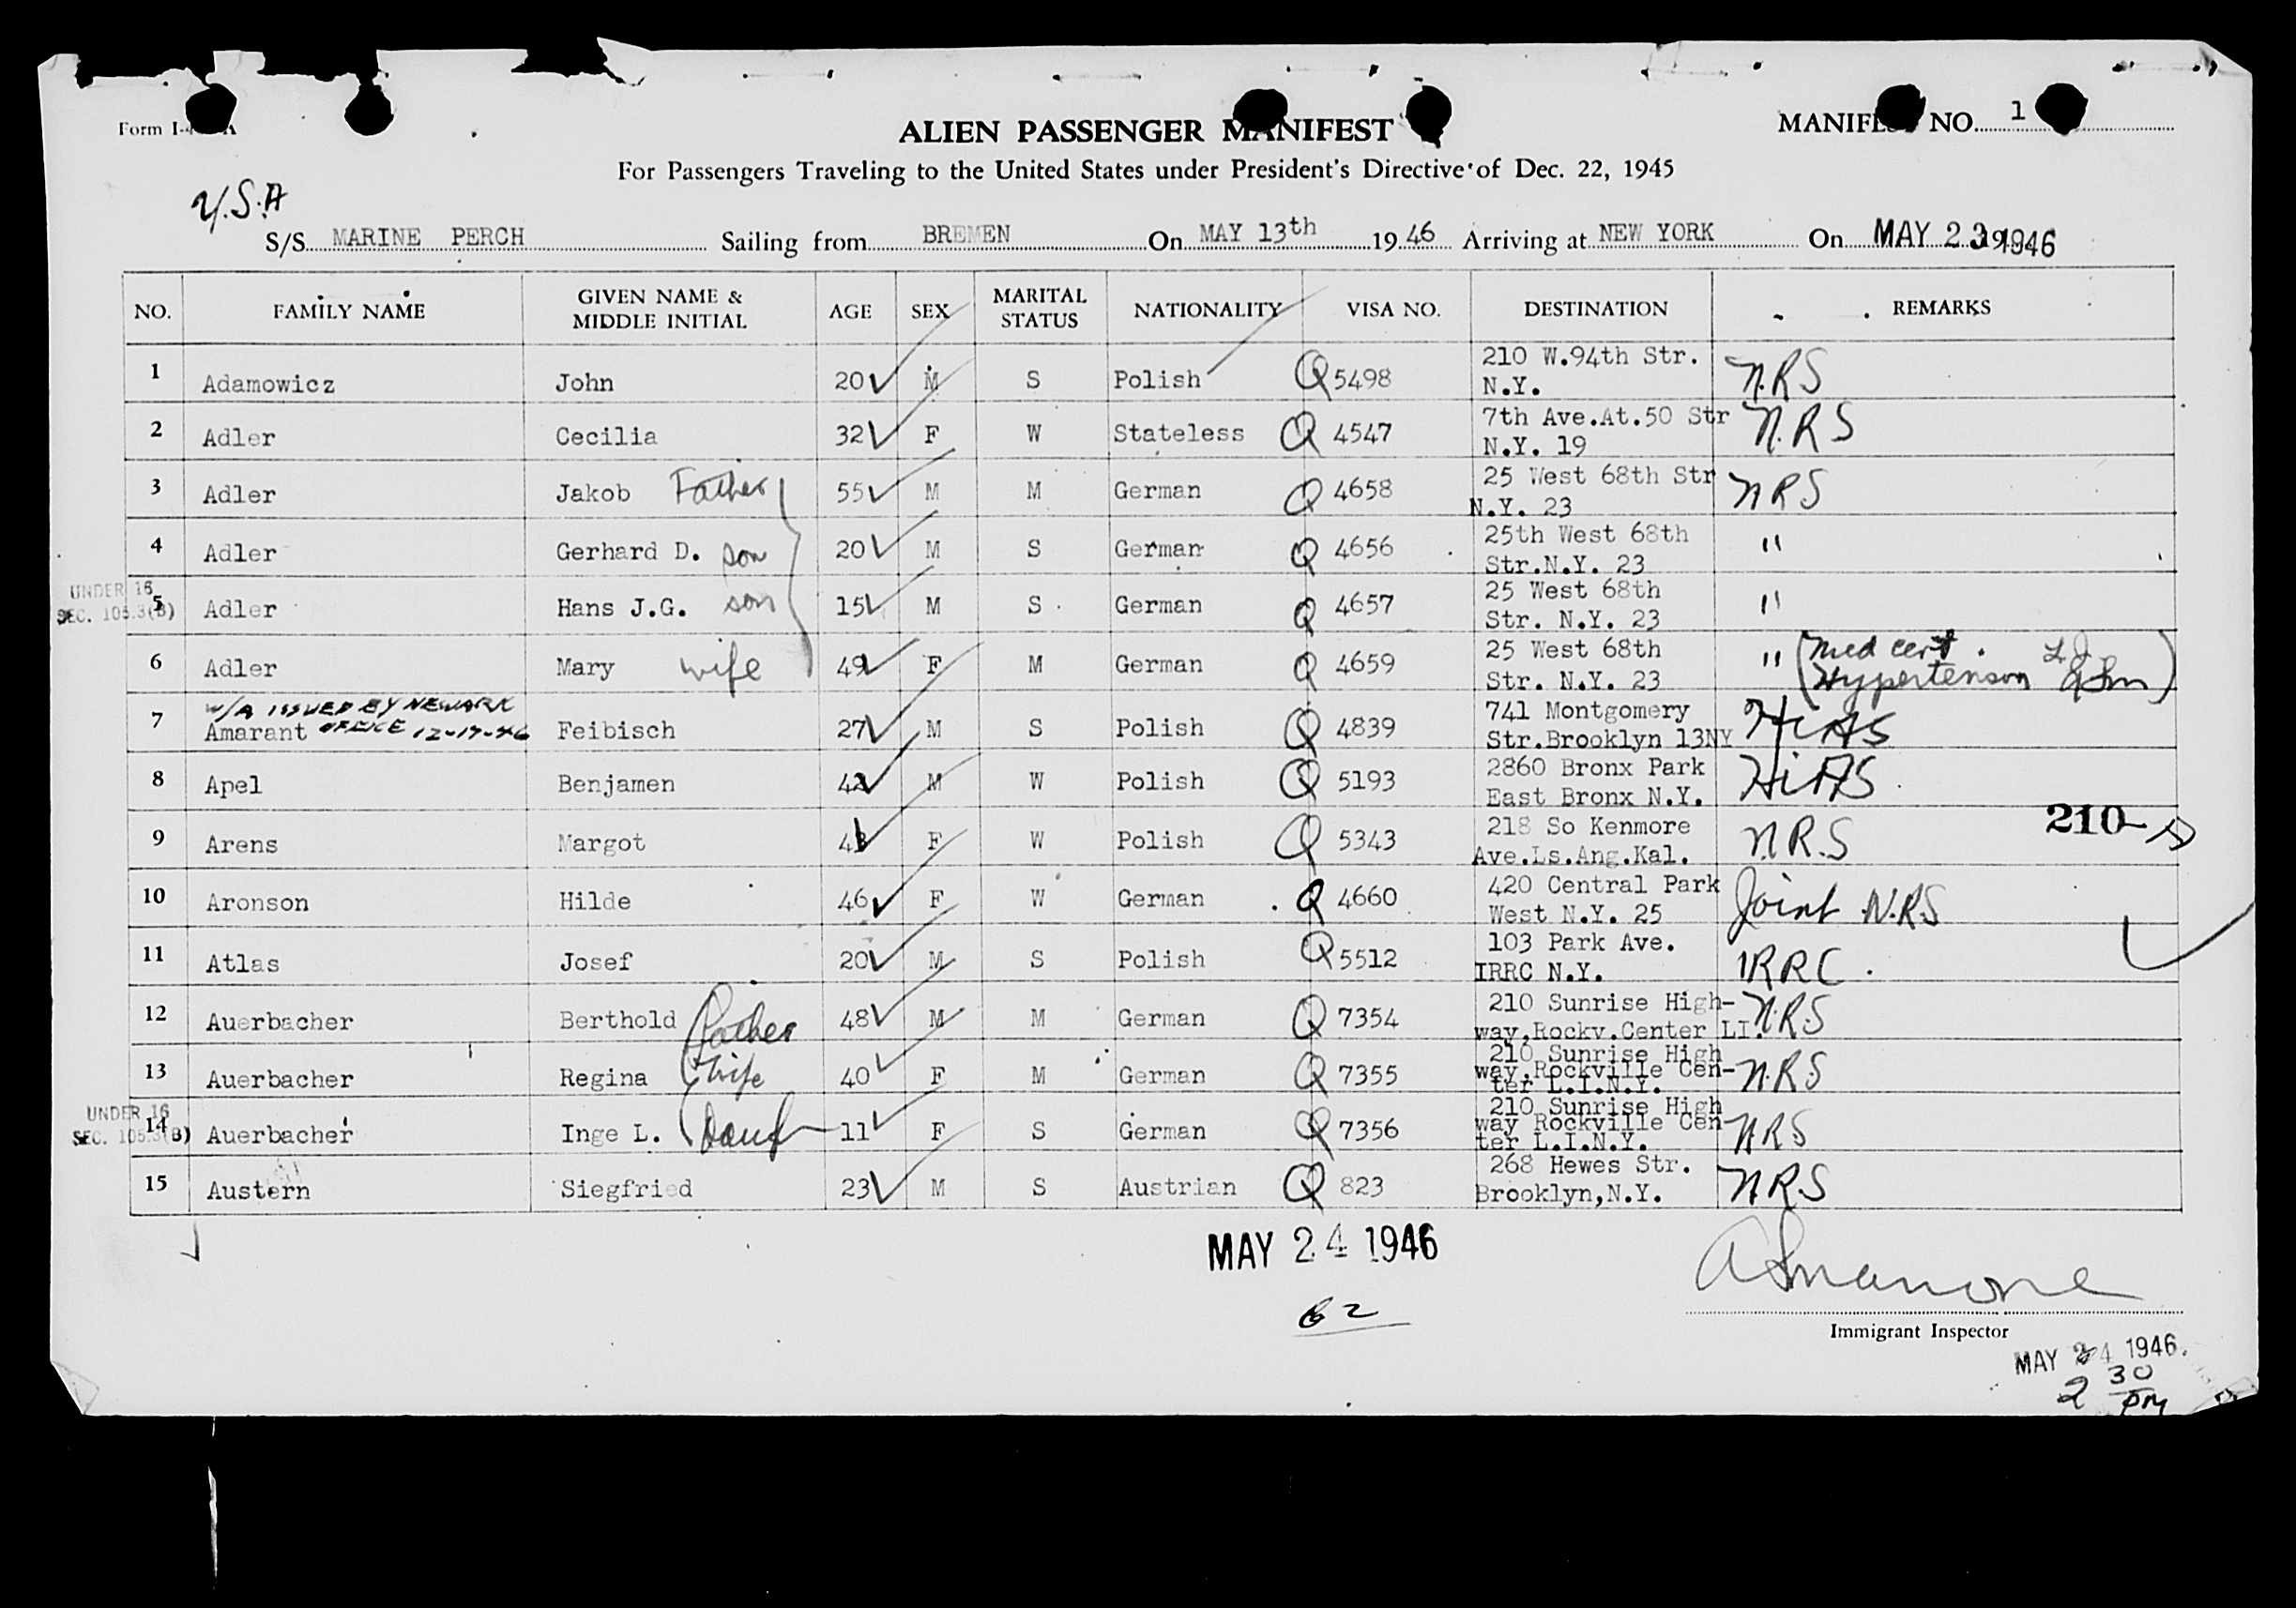 Form I- A
ALIEN PASSENGER MANIFEST
MANIFEST NO. 1
For Passengers Traveling to the United States under President's Directive of Dec. 22, 1945
U.S.A
S/S MARINE PERCH Sailing from BREMEN On MAY 13th 1946 Arriving at NEW YORK On MAY 23 1946
NO. FAMILY NAME GIVEN NAME & MIDDLE INITIAL AGE SEX MARITAL STATUS NATIONALITY VISA NO. DESTINATION REMARKS
1 Adamowicz John 20 M S Polish Q 5498 210 W.94th Str. N.R.S
N.Y.
2 Adler Cecilia 32 F W Stateless Q 4547 7th Ave.At.50 Str N.R.S
N.Y. 19
3 Adler Jakob Father 55 M M German Q 4658 25 West 68th Str NRS
N.Y. 23
4 Adler Gerhard D. son 20 M S German Q 4656 25th West 68th "
Str.N.Y. 23
UNDER 16
SEC. 105.3(B)
5 Adler Hans J.G. son 15 M S German Q 4657 25 West 68th "
Str. N.Y. 23
6 Adler Mary wife 49 F M German Q 4659 25 West 68th " (Med cert.
Str. N.Y. 23 Hypertension
W/A ISSUED BY NEWARK
OFFICE 12-17-46
7 Amarant Feibisch 27 M S Polish Q 4839 741 Montgomery HIAS
Str.Brooklyn 13NY
8 Apel Benjamen 42 M W Polish Q 5193 2860 Bronx Park HiAS
East Bronx N.Y.
210-
9 Arens Margot 43 F W Polish Q 5343 218 So Kenmore N.R.S
Ave.Ls.Ang.Kal.
10 Aronson Hilde 46 F W German Q 4660 420 Central Park Joint N.R.S
West N.Y. 25
11 Atlas Josef 20 M S Polish Q 5512 103 Park Ave. IRRC.
IRRC N.Y.
12 Auerbacher Berthold Father 48 M M German Q 7354 210 Sunrise High- N.R.S
way,Rockv.Center LI.
13 Auerbacher Regina Wife 40 F M German Q 7355 210 Sunrise High N.R.S
way,Rockville Cen-
ter L.I.N.Y.
UNDER 16
SEC. 105.3(B)
14 Auerbacher Inge L. Daug 11 F S German Q 7356 210 Sunrise High NRS
way Rockville Cen-
ter L.I.N.Y.
15 Austern Siegfried 23 M S Austrian Q 823 268 Hewes Str. N.R.S
Brooklyn,N.Y.
MAY 24 1946
62
Immigrant Inspector
MAY 24 1946.
2 30
PM